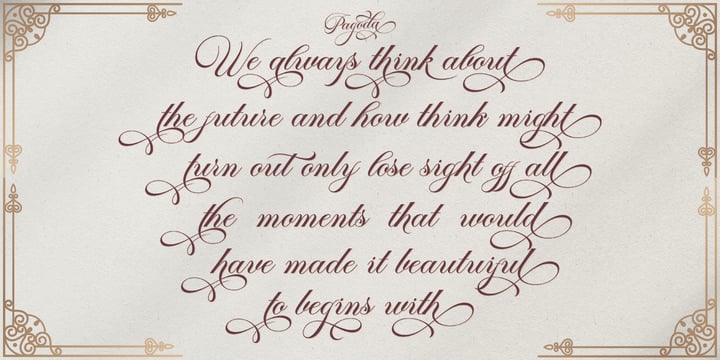 Pagoda
We always think about
the future and how think might
turn out only lose sight off all
the moments that would
have made it beautuiful
to begins with